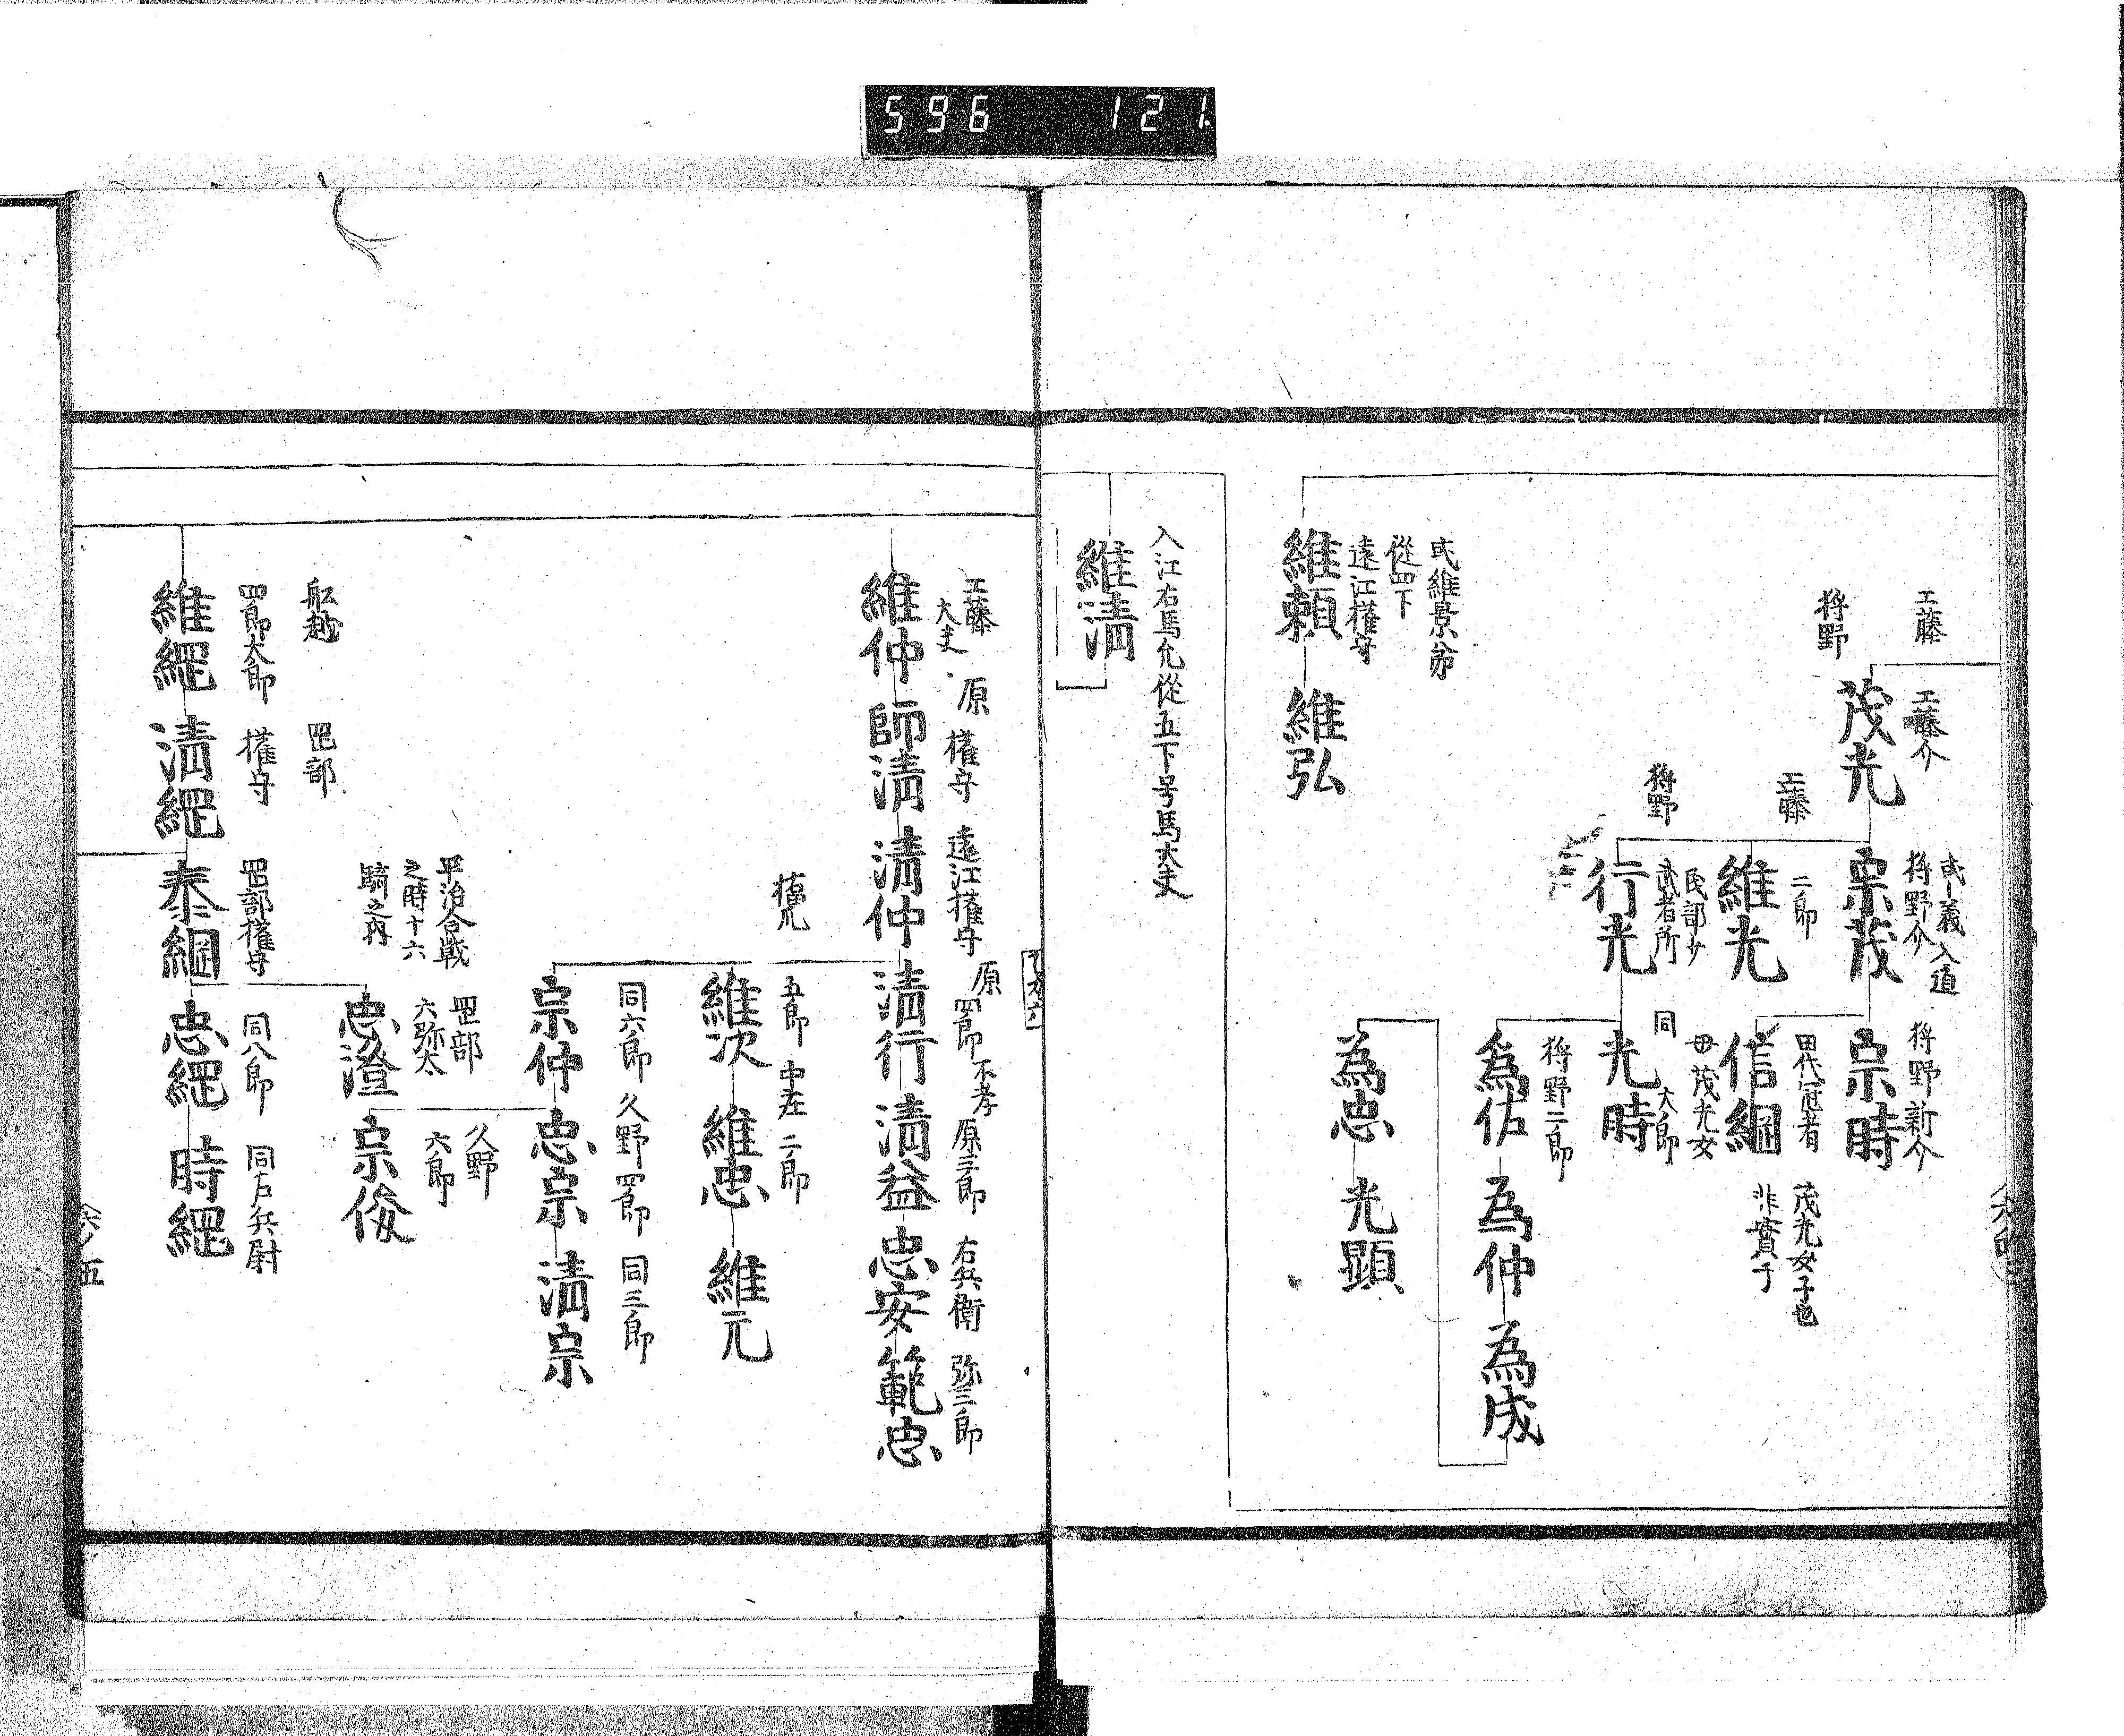 596 121
工藤
狩野
工藤介
茂光
或義入道
狩野介
宗茂
狩野新介
宗時
工藤
二郎
維光
田代冠者
信綱
茂光女子也
非實子
狩野
民部少
武者所
行光
同
母茂光女
太郎
光時
狩野二郎
為佐
為仲
為成
為忠
光顕
或維景弟
從四下
遠江權守
維頼
維弘
入江右馬允從五下号馬大夫
維清
工藤
大夫
維仲
原
權守
師清
遠江權守
清仲
原
四郎
不孝
清行
原三郎
清益
右兵衛
忠安
弥三郎
範忠
權允
五郎
維次
中庄二郎
維忠
維元
同六郎
宗仲
久野四郎
忠宗
同三郎
清宗
平治合戦
之時十六
騎之内
罡部
六弥太
忠澄
久野
六郎
宗俊
舩越
四郎大郎
維綱
罡部
權守
清綱
罡部權守
泰綱
同八郎
忠綱
同右兵尉
時綱